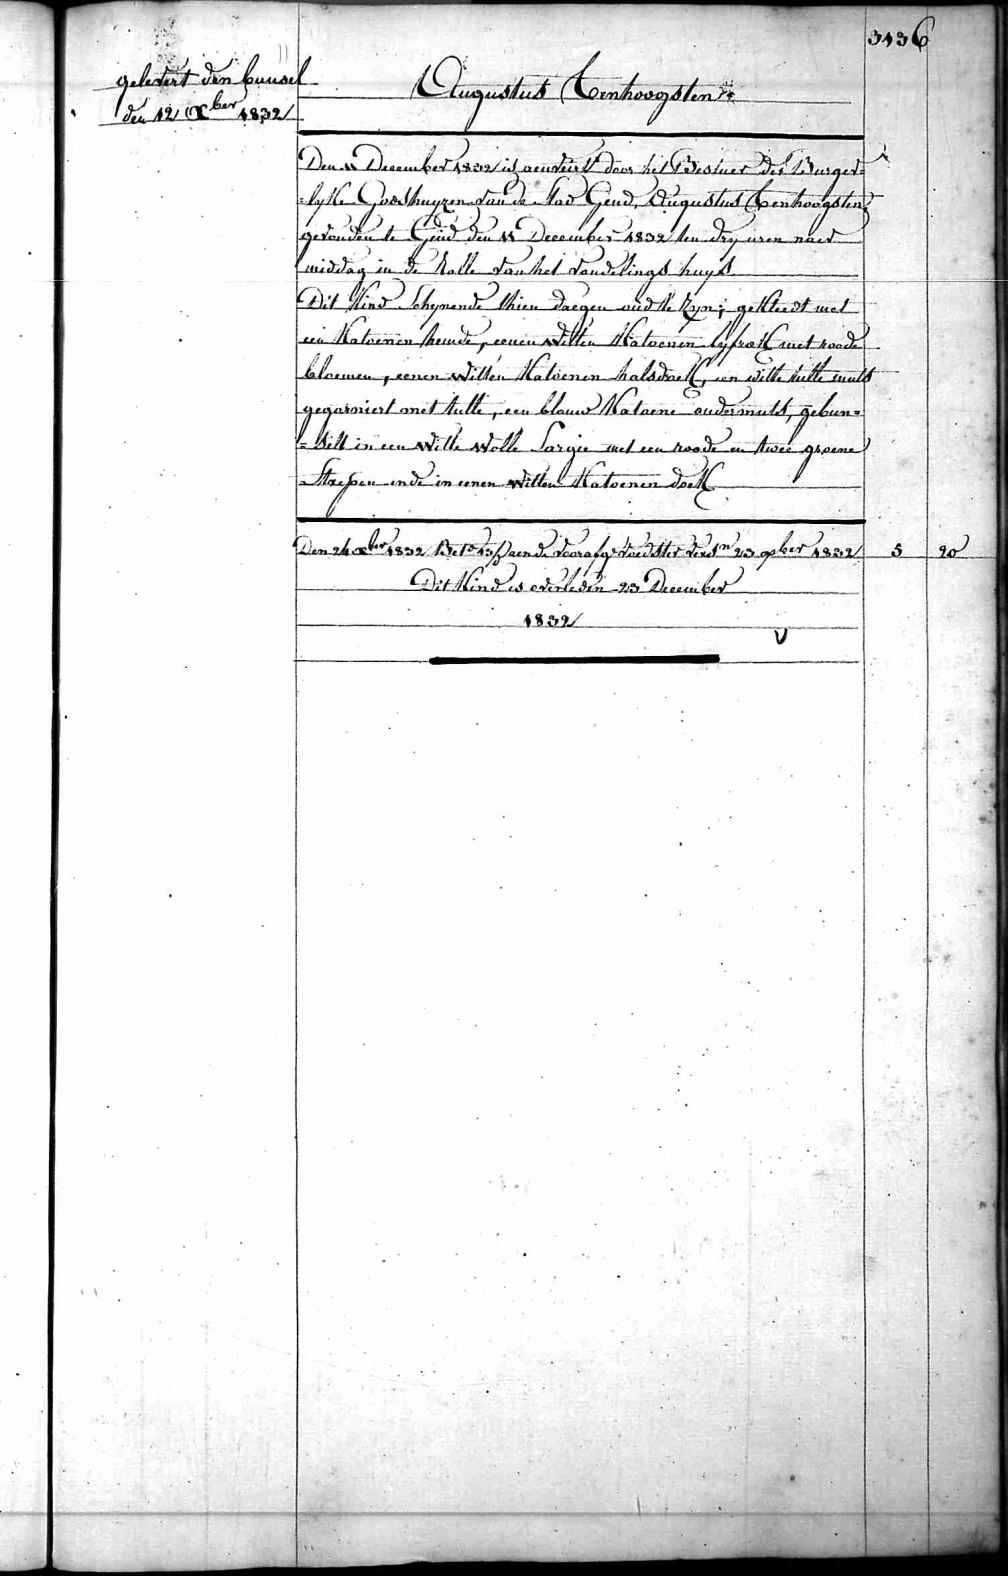 3136
gelevert den bunsel
den 12 Xber 1832
Augustus Tenhoogsten
Den 11 December 1832 is aenveirt door het Bestuer der Burger=
=lyke Godshuyzen van de stad Gend, Augustus Tenhoogsten,
gevonden te Gend den 11 December 1832 ten dry uren naer
middag in de Rolle van het vondelings huys
Dit Kind schynende thien daegen oud te zyn; gekleedt met
een Katoenen hemde, eenen witten Katoenen lyfrok met roode
bloemen, eenen witten Katoenen halsdoek, een witte tulle muts
gegarniert met tulle, een blauw Katoene ondermuts, gebun=
=selt in een witte wolle Sargie met een roode en twee groene
Strepen ende in eenen witten Katoenen doek
Den 24 xber 1832 Bet 13 aende voedster 23 xber 1832 5 20
Dit Kind is overleden 23 December
1832
V